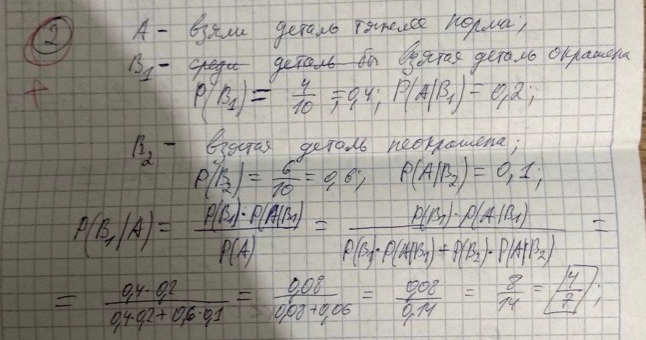 2 A - взяли деталь тяжелее нормы;
B₁ - среди деталь бы взятая деталь окрашена
+ P(B₁) = 4/10 = 0,4; P(A|B₁) = 0,2;
B₂ - взятая деталь неокрашена;
P(B₂) = 6/10 = 0,6; P(A|B₂) = 0,1;
P(B₁|A) = P(B₁)·P(A|B₁)/P(A) = P(B₁)·P(A|B₁)/(P(B₁)·P(A|B₁)+P(B₂)·P(A|B₂)) =
= 0,4·0,2/(0,4·0,2+0,6·0,1) = 0,08/(0,08+0,06) = 0,08/0,14 = 8/14 = 4/7;